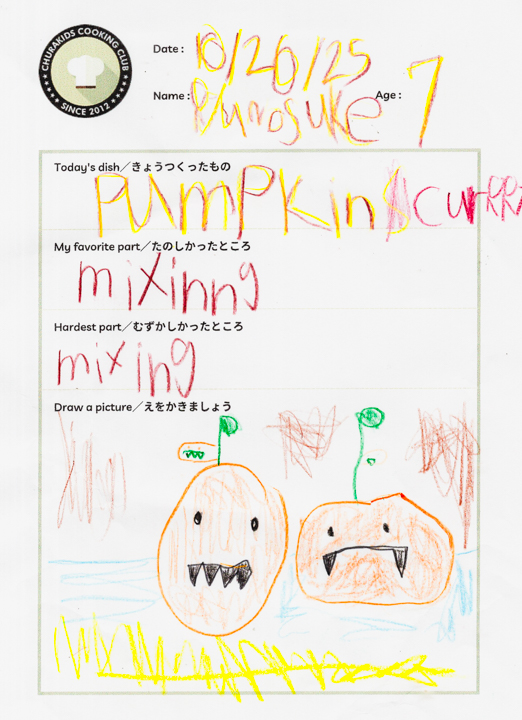 CHURAKIDS COOKING CLUB
SINCE 2012
Date : 10/26/25
Name : Ryunosuke Age : 7
Today's dish／きょうつくったもの
PUMPKin curry
My favorite part／たのしかったところ
mixinng
Hardest part／むずかしかったところ
mixing
Draw a picture／えをかきましょう